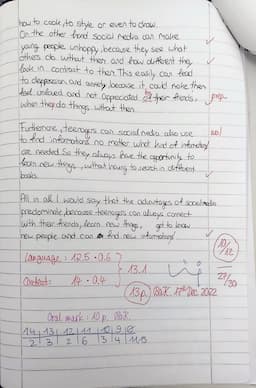 how to cook, to style or even to draw.
On the other hand social media can make
young people unhappy, because they see what
others do without them and how different they
look in contrast to them. This easily can lead
to depression and anxiety because it could make them
feel unloved and not appreciated by their friends,
when they do things without them.
prep.
Furthermore, teenagers can social media also use
to find informations no matter what kind of information
are needed. So they always have the opportunity to
learn new things, without having to search in different
books.
All in all I would say that the advantages of social media
predominate, because teenagers can always connect
with their friends, learn new things, get to know
new people and can find new information!
Language: 12.5 · 0.6
13.1
Content: 14 · 0.4
13p.
17th Dec 2022
10/12
29/30
Oral mark: 10 p.
14 13 12 11 10 9
2 3 2 6 3 4